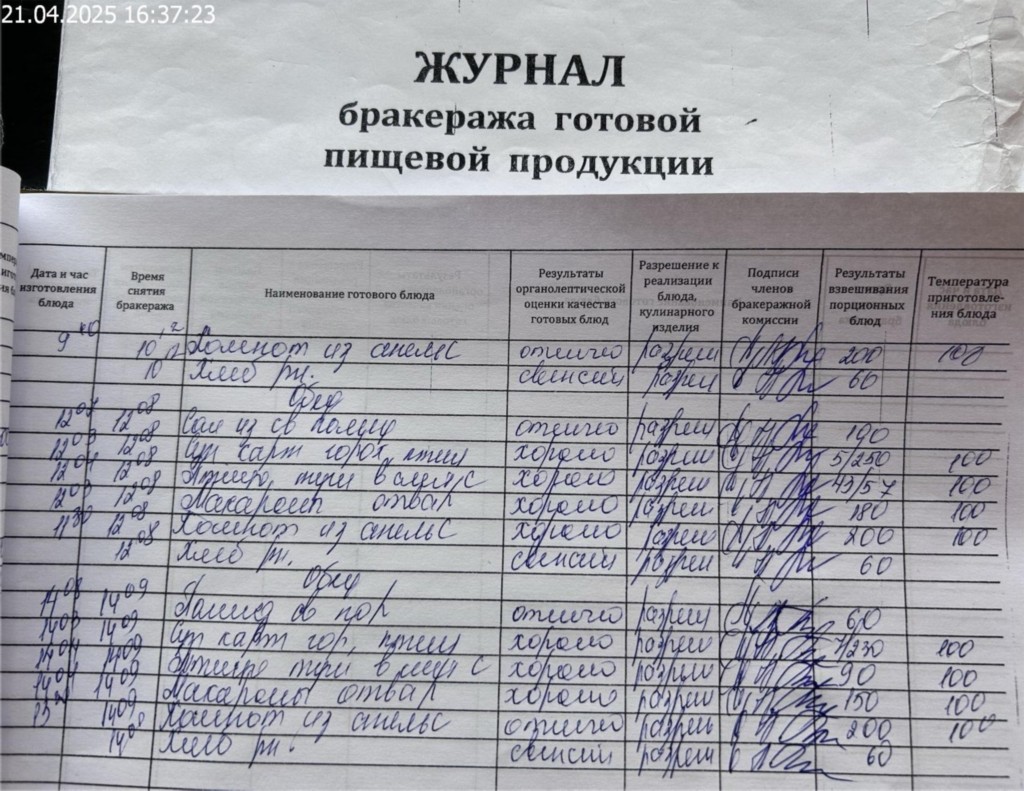 21.04.2025 16:37:23
ЖУРНАЛ
бракеража готовой
пищевой продукции
Дата и час изготовления блюда
Время снятия бракеража
Наименование готового блюда
Результаты органолептической оценки качества готовых блюд
Разрешение к реализации блюда, кулинарного изделия
Подписи членов бракеражной комиссии
Результаты взвешивания порционных блюд
Температура приготовле-ния блюда
Компот из апельс отлично разреш 200 100
10 Хлеб рж. разреш 60
Обед
12 08 Сал из св помид отлично разреш 190
12 08 Суп карт горох, птиц хорошо разреш 5/250 100
12 08 туш в смет с хорошо разреш 43/57 100
12 08 Макароны отвар хорошо разреш 180 100
11 30 12 08 Компот из апельс хорошо разреш 200 100
12 08 Хлеб рж. разреш 60
Обед
14 09 Помид св пор отлично разреш 60
14 09 Суп карт гор, птиц хорошо разреш 7/230 100
14 09 туш в смет с хорошо разреш 90 100
14 09 Макароны отвар хорошо разреш 150 100
14 09 Компот из апельс отлично разреш 200 100
Хлеб рж. разреш 60